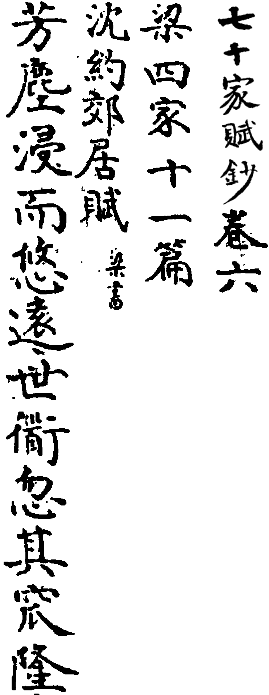 七十家賦鈔卷六
梁四家十一篇
沈約郊居賦 梁書
芳塵浸而悠遠世衜忽其窊隆